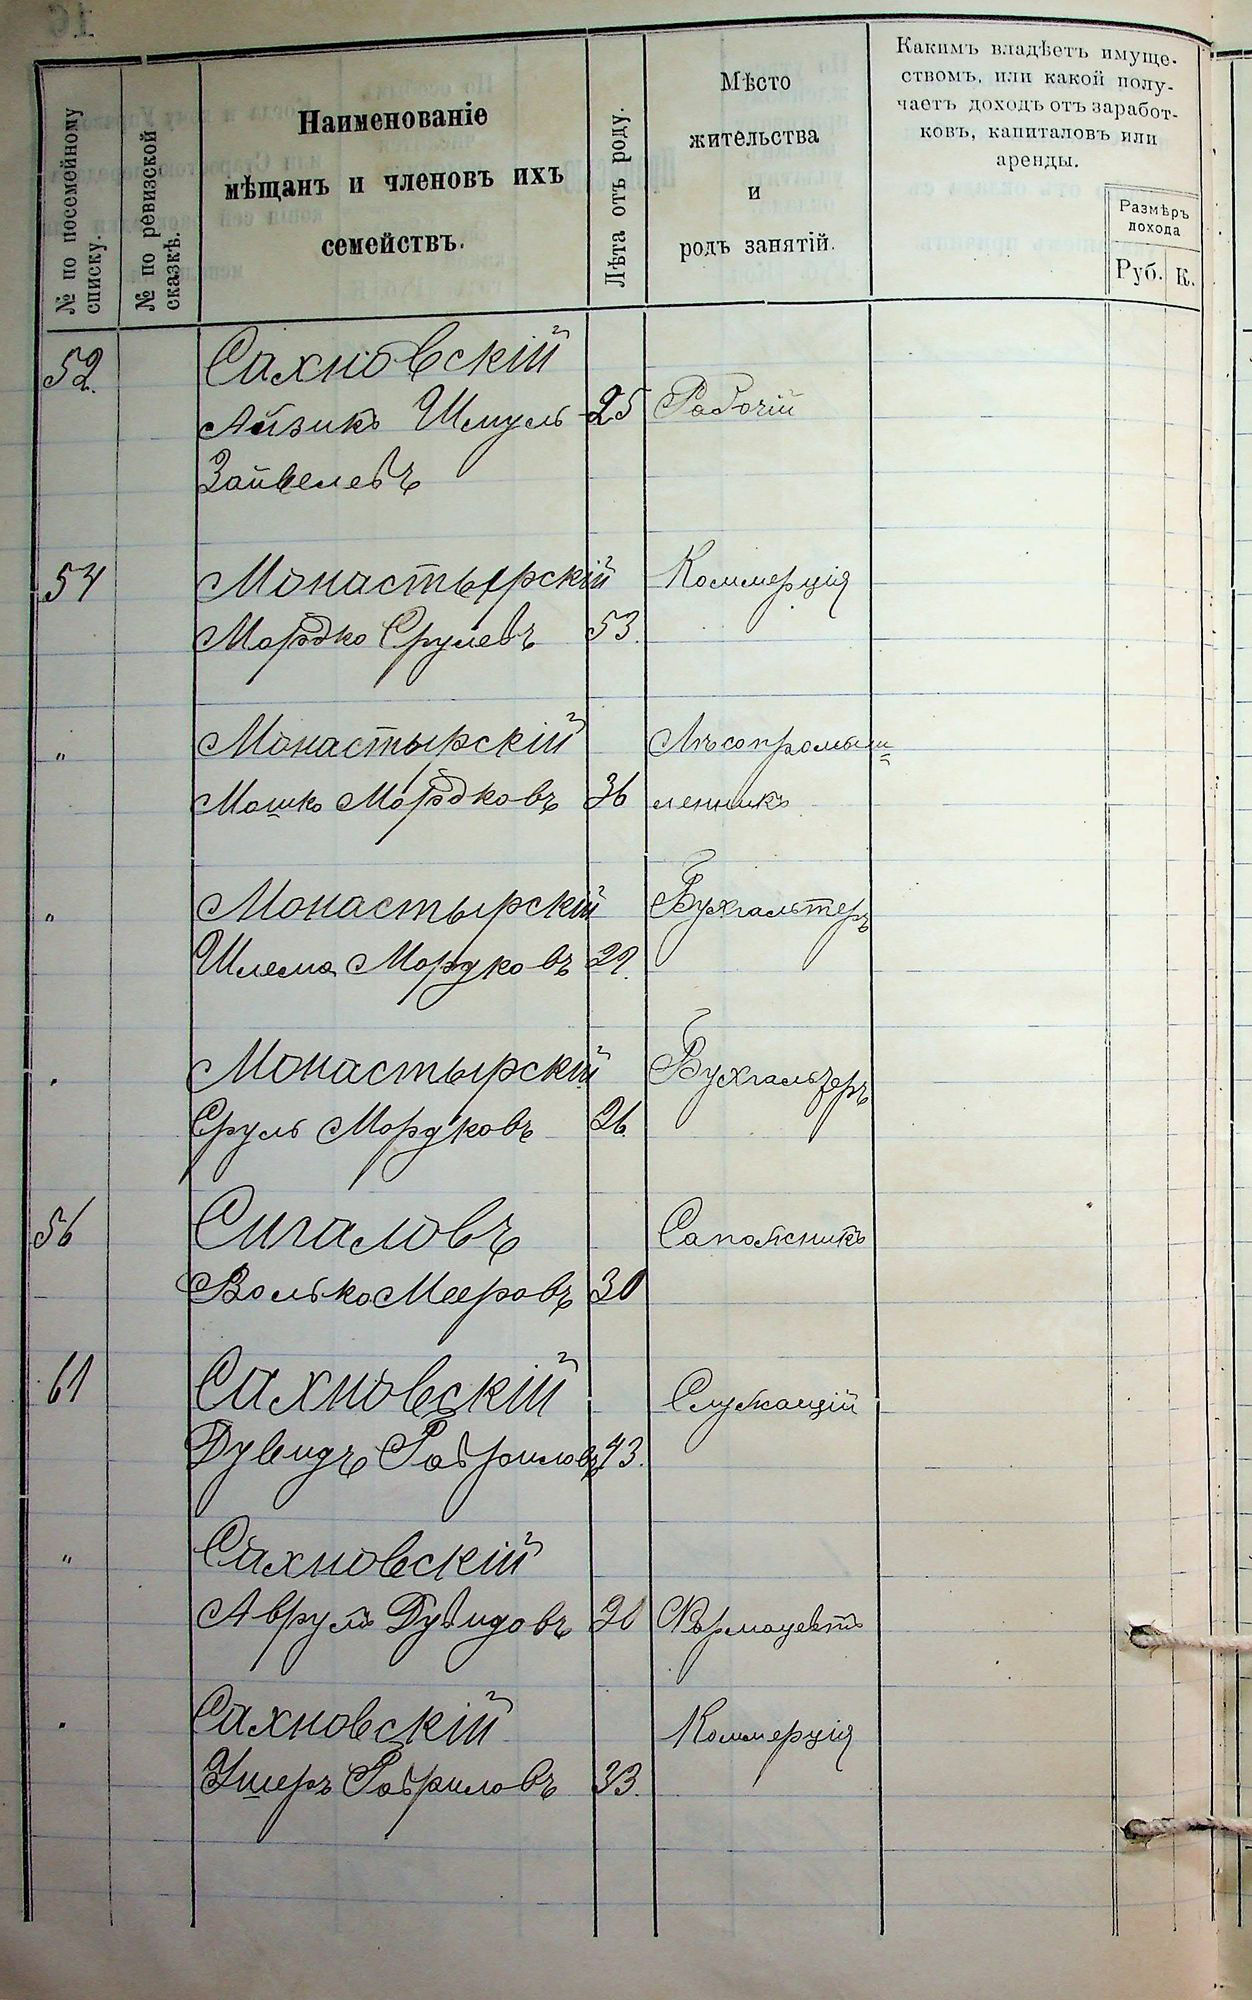 № по посемейному
списку.
№ по ревизской
сказкѣ.
Наименованіе
мѣщанъ и членовъ ихъ
семействъ.
Лѣта отъ роду.
Мѣсто
жительства
и
родъ занятій.
Какимъ владѣетъ имуще-
ствомъ, или какой полу-
чаетъ доходъ отъ заработ-
ковъ, капиталовъ или
аренды.
Размѣръ
дохода
Руб. К.
52. Сахновскій
Айзикъ Шмуль- 25 Рабочій
Зайвелевъ
54 Монастырскій Коммерція
Мордко Срулевъ 53.
" Монастырскій Лѣсопромыш
Мошко Мордковъ 36 ленникъ
" Монастырскій Бухгальтеръ
Шлема Мордковъ 29.
" Монастырскій Бухгальтеръ
Сруль Мордковъ 26.
56 Сигаловъ Сапожникъ
Волько Мееровъ 30
61 Сахновскій Служащій
Дувидъ Гавриловъ 43.
" Сахновскій
Аврумъ Дувидовъ 20 Фармацевтъ
" Сахновскій Коммерція
Ушеръ Гавриловъ 33.